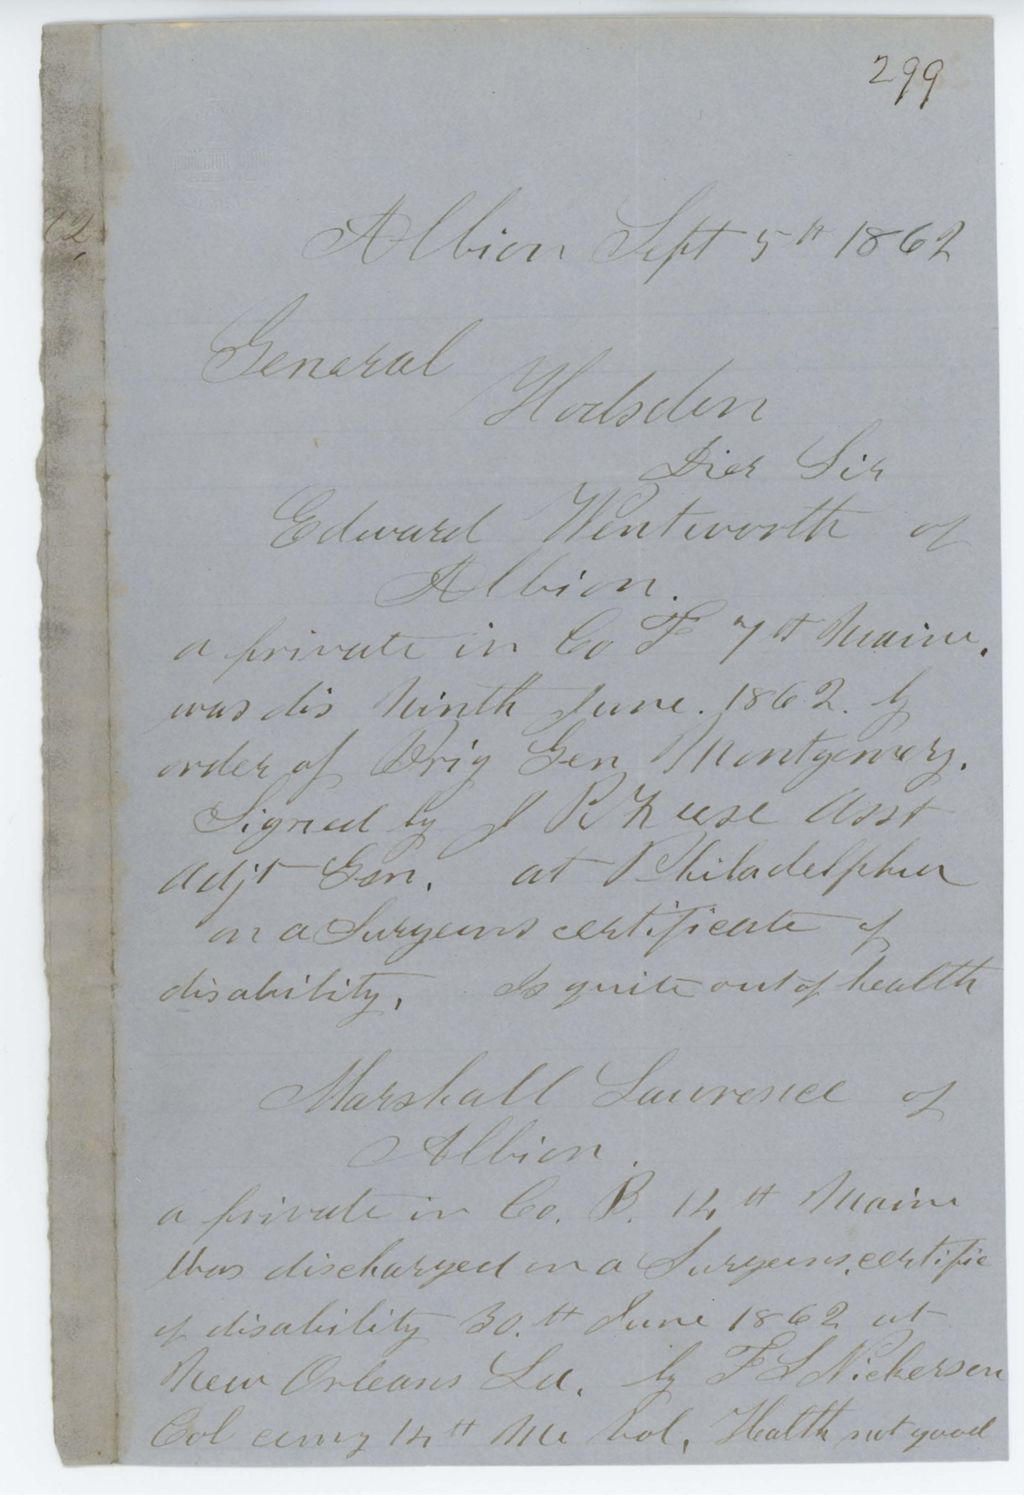 299
Albion Sept 5th 1862
General
Hodsden
Dier Sir
Edward Wentworth of
Albion.
a private in Co F 7th Maine.
was dis Ninth June. 1862. by
order of Brig Gen Montgomery.
Signed by J R Reese Asst
Adjt Gen. at Philadelphia
on a Surgeons certificate of
disability. Is quite out of health
Marshall Lawrence of
Albion.
a private in Co. B. 14th Maine
Was discharged on a Surgeons certific
of disability 30.th June 1862 at
New Orleans La. by F S Nickerson
Col comg 14th Me Vol. Health not good